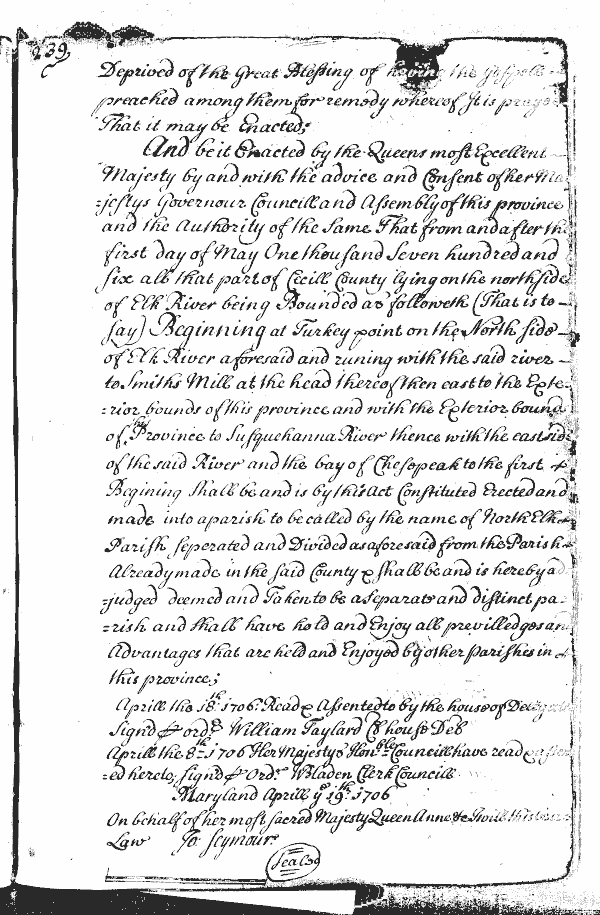 239
Deprived of the Great Blessing of having the Gospell
preached among them for remedy whereof It is
That it may be Enacted;
And be it Enacted by the Queens most Excellent
Majesty by and with the advice and Consent of her Ma
=jestys Governour Councill and Assembly of this province
and the Authority of the Same That from and after the
first day of May One thousand Seven hundred and
six all that part of Cecill County lying on the north side
of Elk River being Bounded as followeth (That is to
say) Beginning at Turkey point on the North side
of Elk River aforesaid and runing with the said river
to Smiths Mill at the head thereof then east to the Exte-
=rior bounds of this province and with the Exterior bound
of this Province to Susquehanna River thence with the east side
of the said River and the bay of Chesopeak to the first
Begining shall be and is by this Act Constituted Erected and
made into a parish to be called by the name of North Elk
Parish seperated and Divided as aforesaid from the Parish
Already made in the said County & shall be and is hereby ad
=judged deemed and Taken to be a Separate and distinct pa-
=rish and shall have hold and Enjoy all previlledges an
Advantages that are held and Enjoyed by other Parishes in
this province;
Aprill the 18th 1706. Read & Assented to by the house of
Signd & ordr William Taylard Cl house Deb
Aprill the 8th 1706 Her Majestys Honble Councill have read
=ed hereto, signd & Ordr W Bladen Clerk Councill
Maryland Aprill ye 19th 1706
On behalf of her most sacred Majesty Queen Anne &c I will this
Law Jo Seymour
Seal